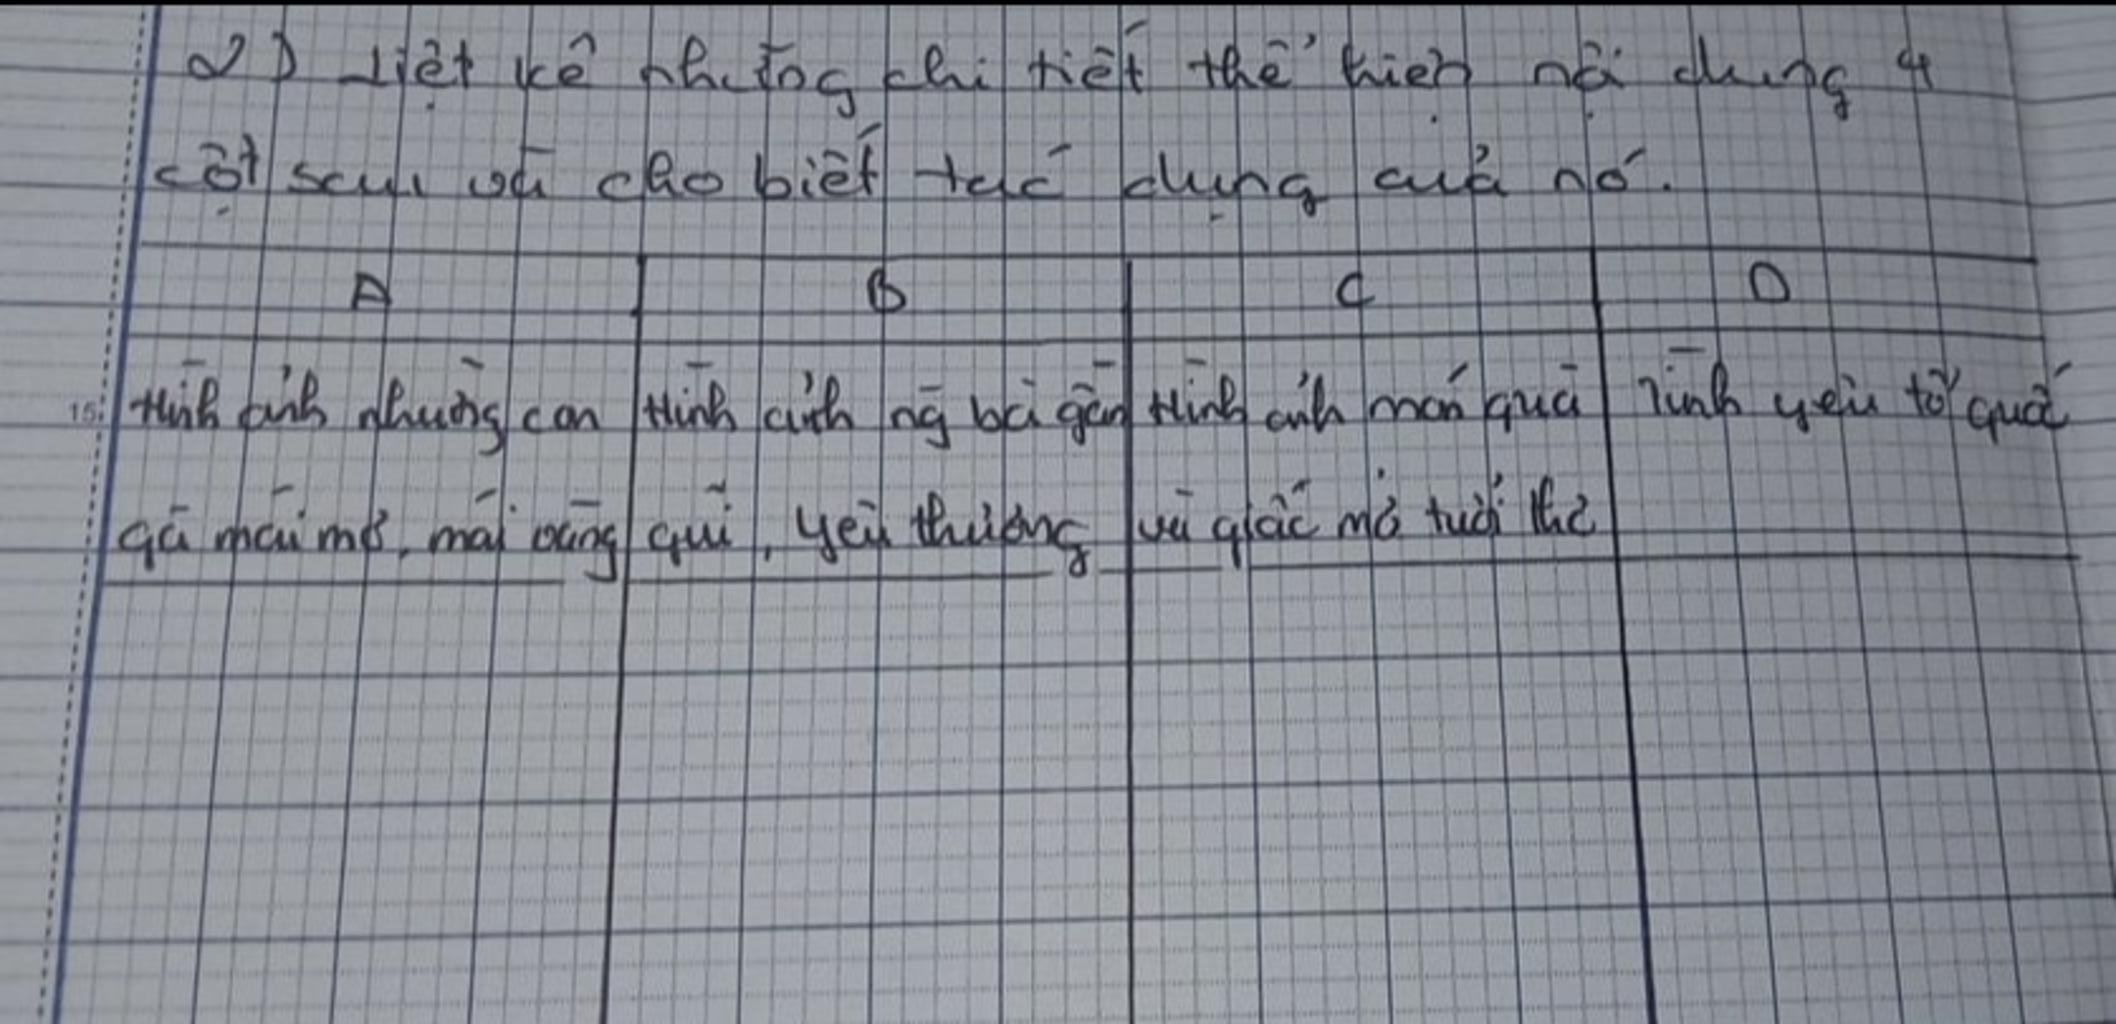 2) Liệt kê những chi tiết thể hiện nội dung 4
cột sau và cho biết tác dụng của nó.
A B C D
Hình ảnh những con Hình ảnh ng bà gần Hình ảnh món quà Tình yêu tổ quốc
gà mái mơ, mái vàng gũi, yêu thương và giấc mơ tuổi thơ
15